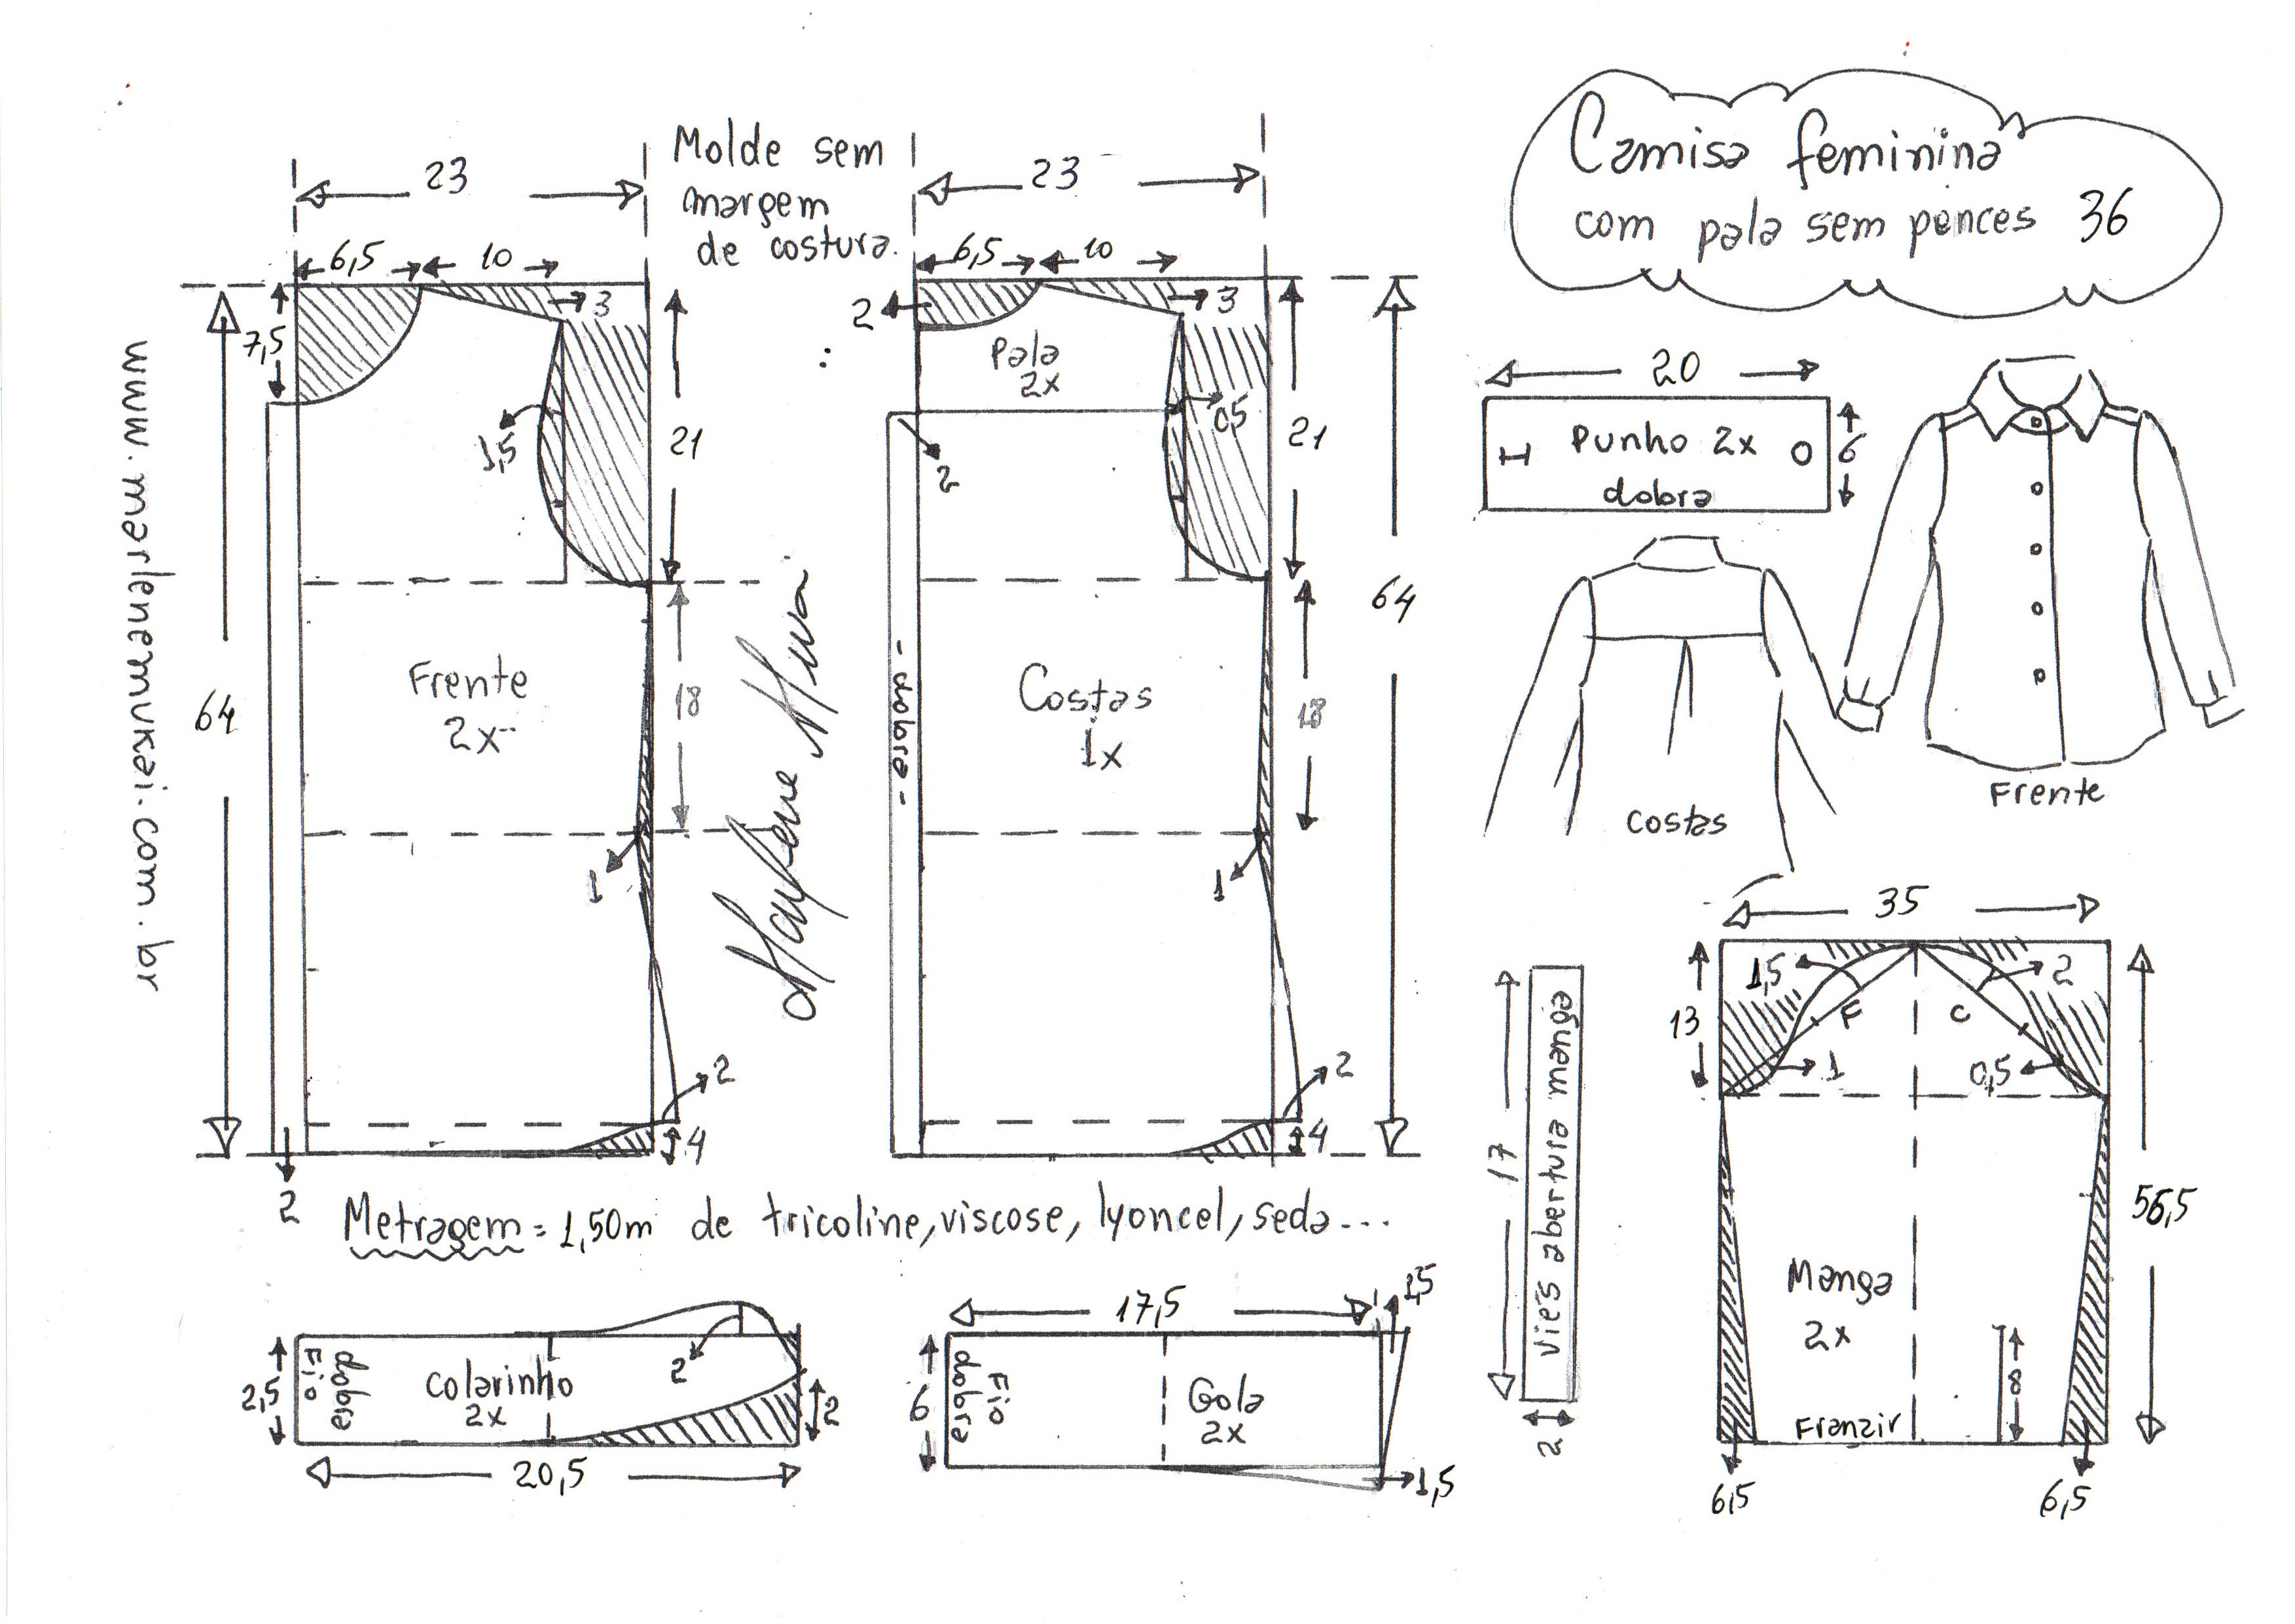 Camisa feminina
com pala sem pences 36
Molde sem
margem
de costura.
www.marlenemukai.com.br
23
6,5
10
3
7,5
1,5
21
64
Frente
2x
18
1
2
4
2
23
6,5
10
2
3
Pala
2x
0,5
2
21
64
- dobra -
Costas
1x
18
1
2
4
20
Punho 2x
dobra
6
Costas
Frente
Metragem = 1,50m de tricoline, viscose, lyoncel, seda...
2,5
Fio
dobra
Colarinho
2x
2
2
20,5
17,5
1,5
6
dobra
Fio
Gola
2x
1,5
17
viés abertura mangas
2
35
13
1,5
F
C
2
1
0,5
56,5
Manga
2x
8
Franzir
6,5
6,5